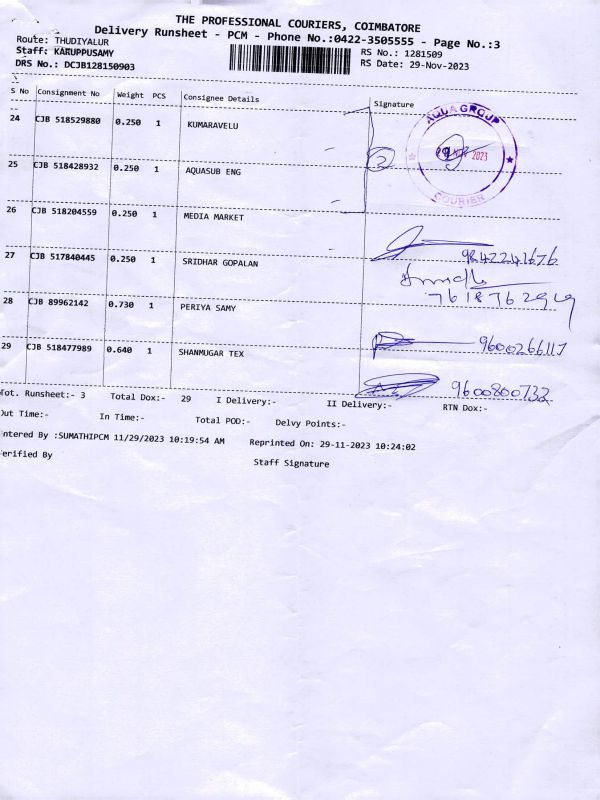 THE PROFESSIONAL COURIERS, COIMBATORE
Delivery Runsheet - PCM - Phone No.:0422-3505555 - Page No.:3
Route: THUDIYALUR
RS No.: 1281509
Staff: KARUPPUSAMY
RS Date: 29-Nov-2023
DRS No.: DCJB128150903
S No Consignment No Weight PCS Consignee Details Signature
24 CJB 518529880 0.250 1 KUMARAVELU
AQUA GROUP
2 NOV 2023
COURIER
25 CJB 518428932 0.250 1 AQUASUB ENG
26 CJB 518204559 0.250 1 MEDIA MARKET
9842241676
27 CJB 517840445 0.250 1 SRIDHAR GOPALAN
28 CJB 89962142 0.730 1 PERIYA SAMY
9600266117
29 CJB 518477989 0.640 1 SHANMUGAR TEX
9600800733
Tot. Runsheet:- 3 Total Dox:- 29 I Delivery:- II Delivery:- RTN Dox:-
Out Time:- In Time:- Total POD:- Delvy Points:-
ntered By :SUMATHIPCM 11/29/2023 10:19:54 AM Reprinted On: 29-11-2023 10:24:02
erified By Staff Signature